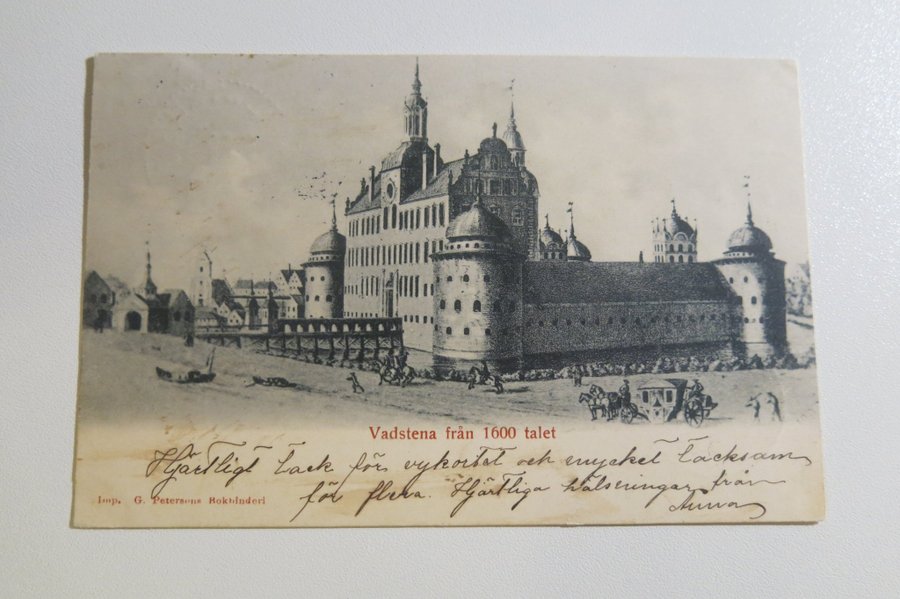 Vadstena från 1600 talet
Hjärtligt tack för vykortet och mycket tacksam
för flera. Hjärtliga hälsningar från
Anna
Imp. G. Petersons Bokbinderi